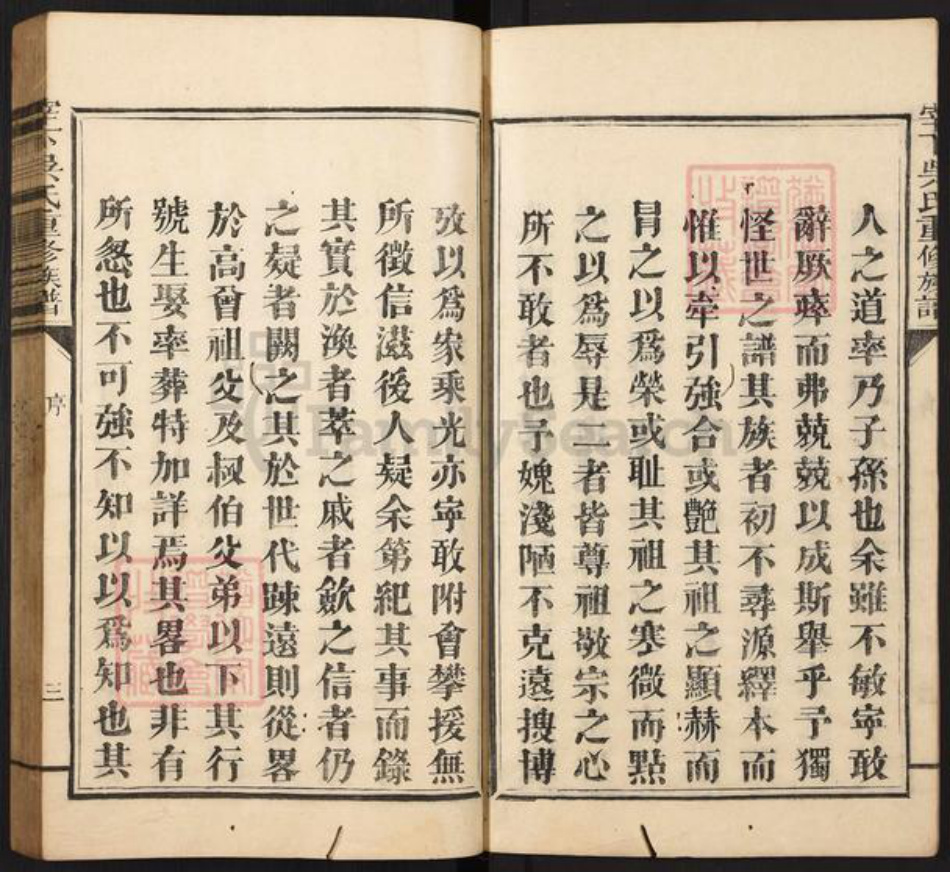 人之道率乃子孫也余雖不敏寧敢
辭厥瘁而弗兢兢以成斯舉乎予獨
怪世之譜其族者初不尋源繹本而
惟以牽引強合或艷其祖之顯赫而
冐之以爲榮或耻其祖之寒微而點
之以爲辱是二者皆尊祖敬宗之心
所不敢者也予媿淺陋不克遠搜博
攷以爲家乘光亦寧敢附會攀援無
所徵信滋後人疑余第紀其事而錄
其實於渙者萃之戚者歛之信者仍
之疑者闕之其於世代踈遠則從畧
於高曾祖父及叔伯父弟以下其行
號生娶率葬特加詳焉其畧也非有
所忽也不可強不知以以爲知也其
吳氏重修族譜
序
三
吳氏重修族譜
FamilySearch